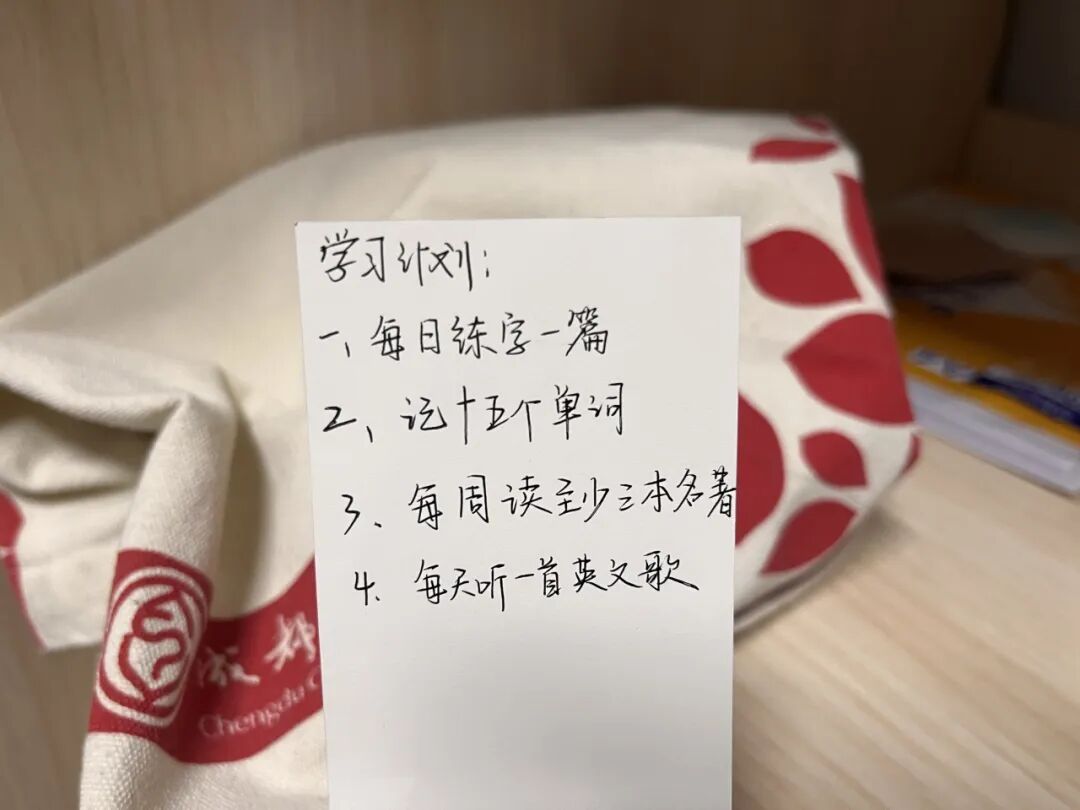 学习计划：
一、每日练字一篇
2、记十五个单词
3、每周读至少三本名著
4、每天听一首英文歌
成都
Chengdu